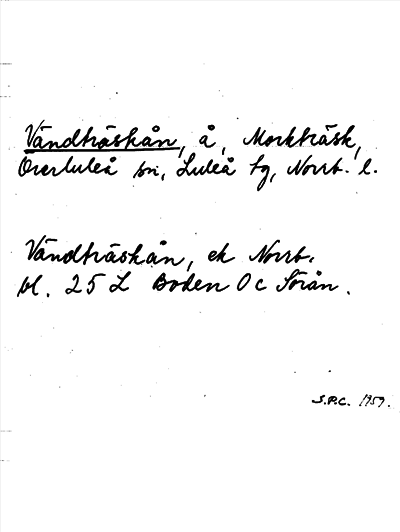 Vändträskån, å, Morkträsk,
Överluleå sn, Luleå tg, Norrb. l.
Vändträskån, ek Norrb.
bl. 25 L Boden Oc Sörån.
S.P.C. 1959.